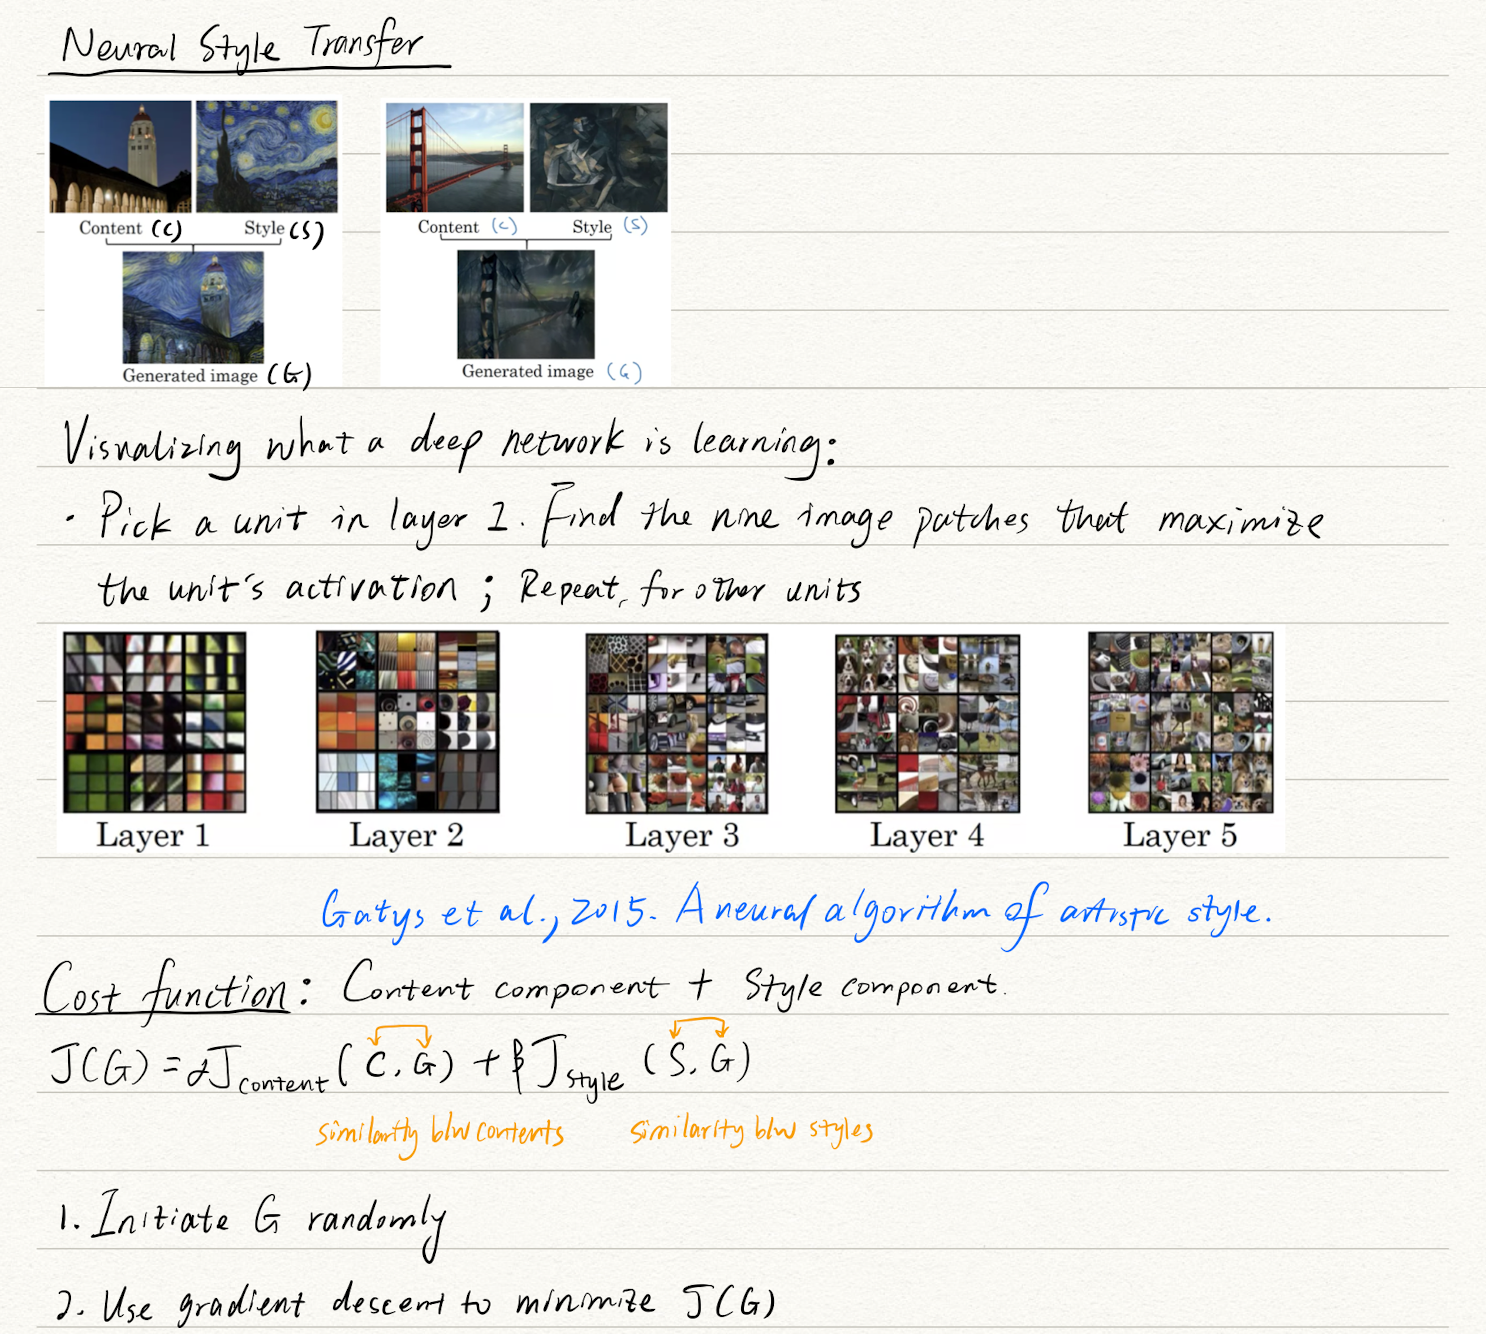 Neural Style Transfer
Content (C) Style (S)
Content (C) Style (S)
Generated image (G)
Generated image (G)
Visualizing what a deep network is learning:
· Pick a unit in layer 1. Find the nine image patches that maximize
the unit's activation ; Repeat for other units
Layer 1 Layer 2 Layer 3 Layer 4 Layer 5
Gatys et al., 2015. A neural algorithm of artistic style.
Cost function: Content component + Style component.
J(G) = αJ_content (C, G) + βJ_style (S, G)
similarity b/w contents similarity b/w styles
1. Initiate G randomly
2. Use gradient descent to minimize J(G)